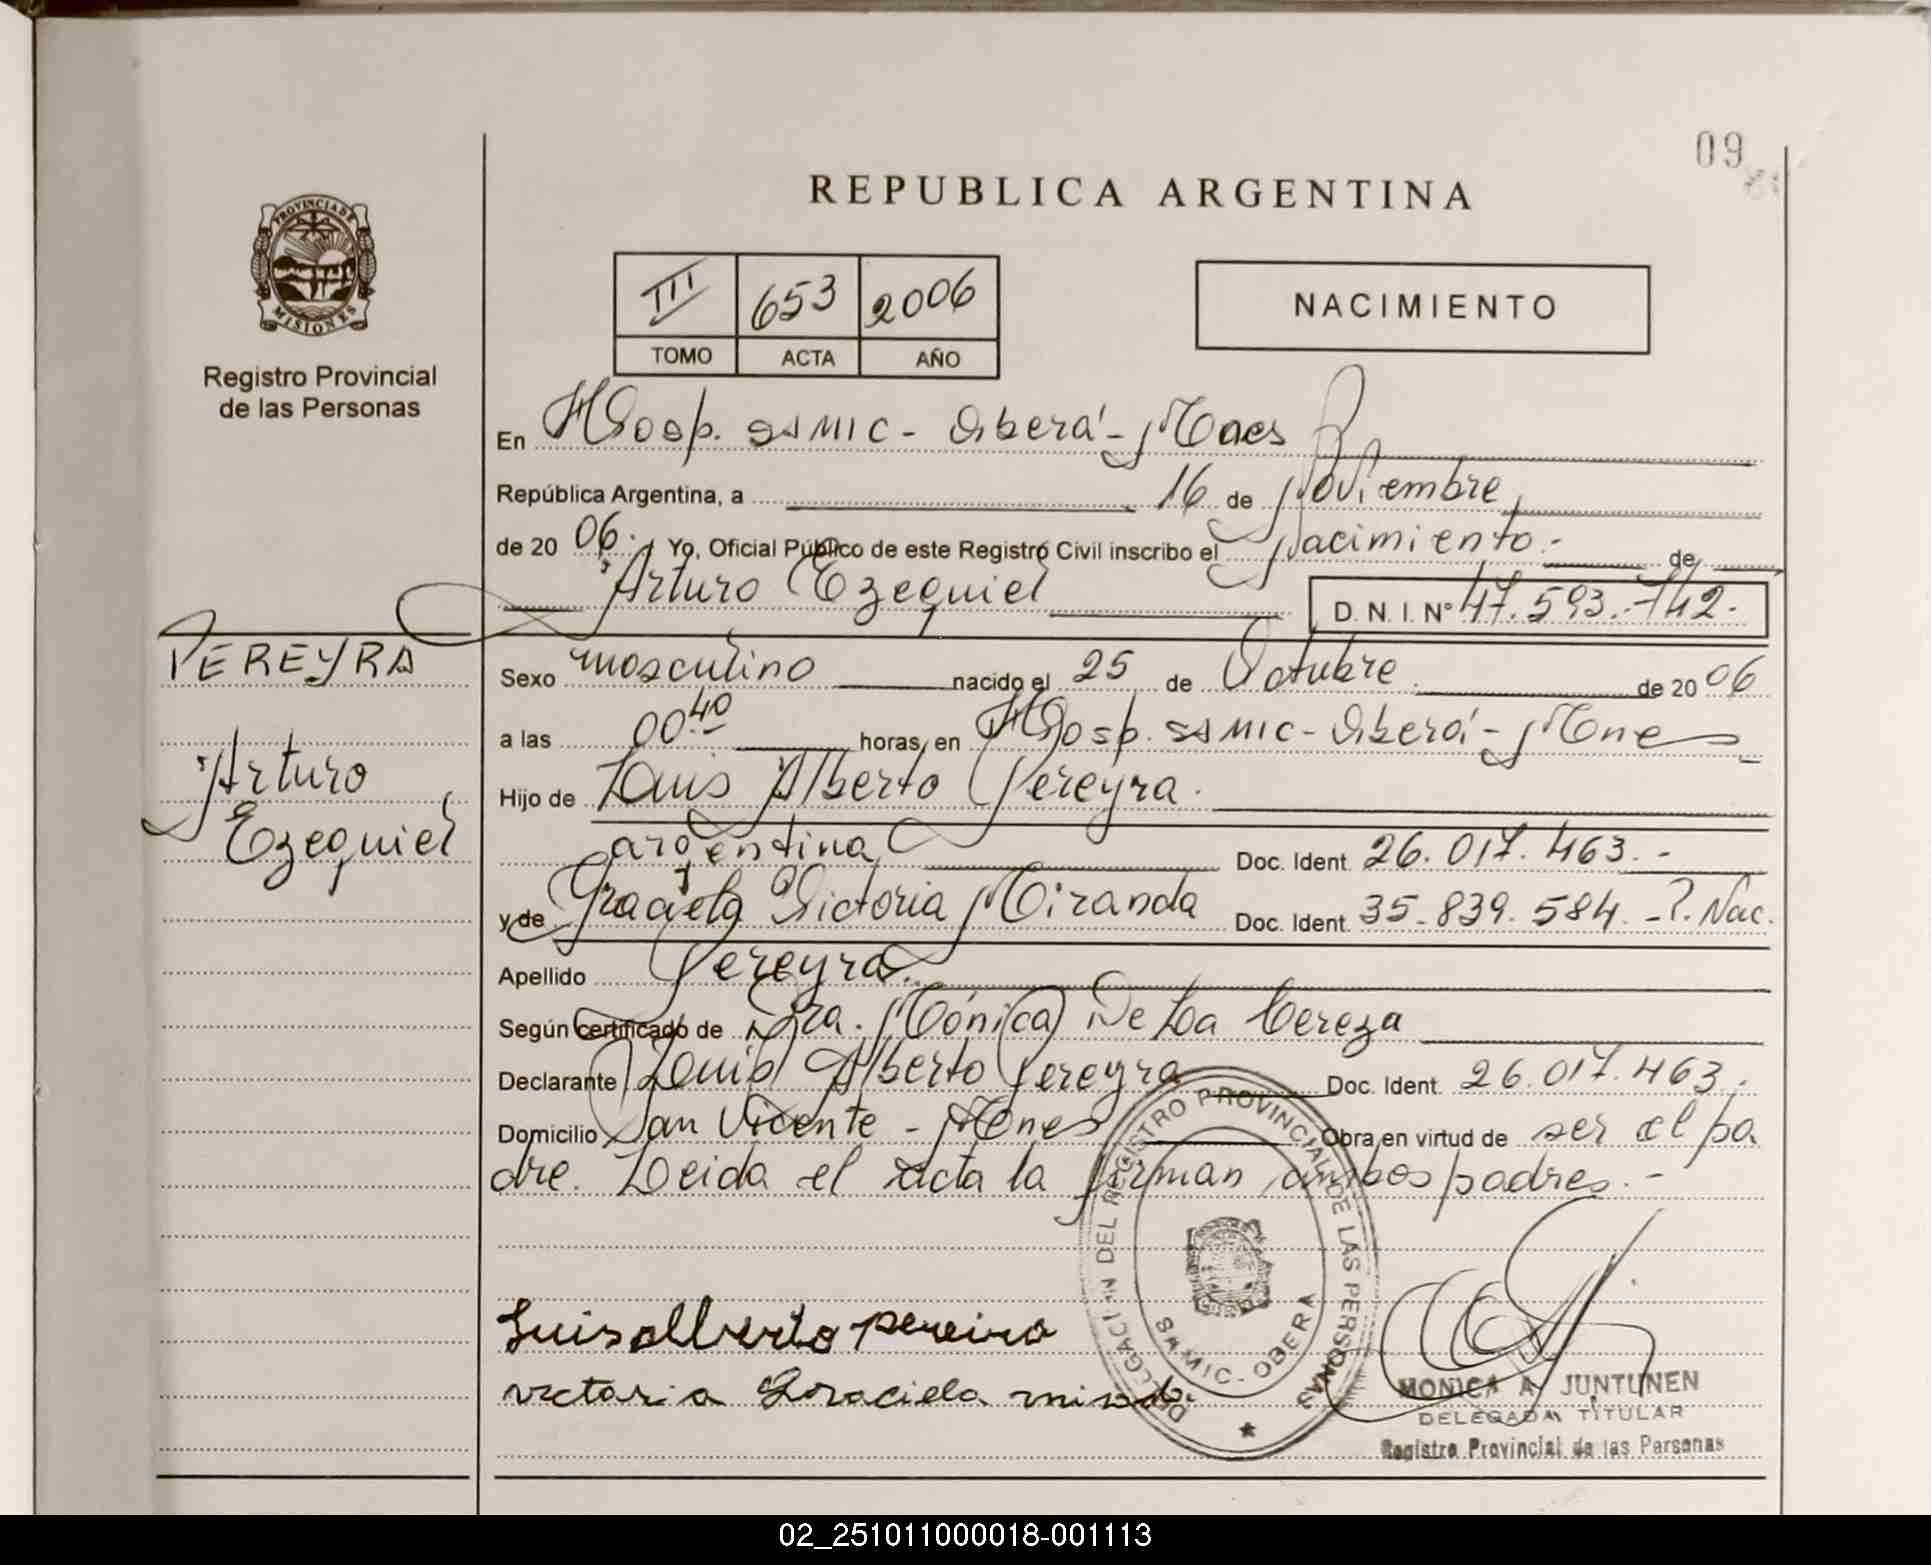 09
REPUBLICA ARGENTINA
PROVINCIA DE
MISIONES
Registro Provincial
de las Personas
III 653 2006
TOMO ACTA AÑO
NACIMIENTO
En Hosp. SAMIC - Oberá - Mnes
República Argentina, a 16 de Noviembre
de 20 06. Yo, Oficial Público de este Registro Civil inscribo el Nacimiento.- de
Arturo Ezequiel D. N. I. Nº 47.593.742.-
PEREYRA
Arturo
Ezequiel
Sexo masculino nacido el 25 de Octubre de 20 06
a las 00 40 horas, en Hosp. SAMIC - Oberá - Mnes
Hijo de Luis Alberto Pereyra.
argentina Doc. Ident. 26.017.463.-
y de Graciela Victoria Miranda Doc. Ident. 35.839.584.- P. Nac.
Apellido Pereyra.
Según certificado de Dra. Mónica De La Cereza
Declarante Luis Alberto Pereyra Doc. Ident. 26.017.463.
Domicilio San Vicente - Mnes Obra en virtud de ser el pa
dre. Leida el acta la firman ambos padres.-
DELEGACION DEL REGISTRO PROVINCIAL DE LAS PERSONAS
SAMIC - OBERA
Luis alberto pereira
victoria Graciela
MONICA A. JUNTUNEN
DELEGADA TITULAR
Registro Provincial de las Personas
02_251011000018-001113